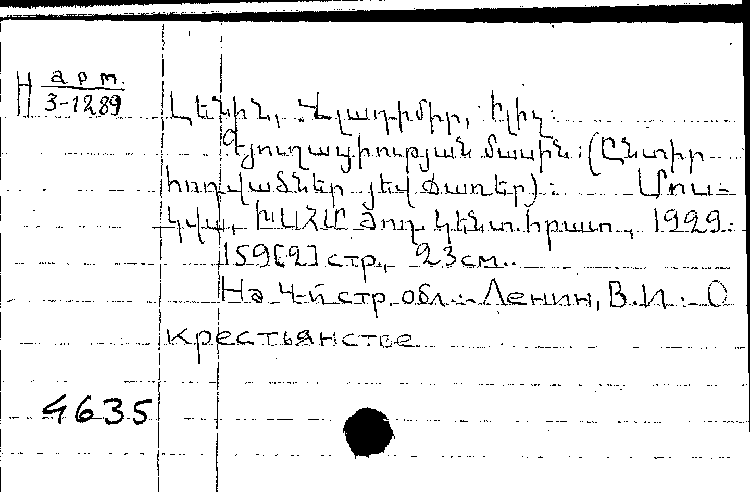 Н арт.
3-1289
Լենին, Վլադիմիր, Իլիչ.
Գյուղացիության մասին: (Ընտիր
հոդվածներ յեվ ճառեր): Մոս-
կվա, ԽՍՀՄ Ժող. Կենտ. հրատ., 1929.
159[2] стр., 23см..
На 4-й стр. обл.: Ленин, В.И. О
крестьянстве
4635